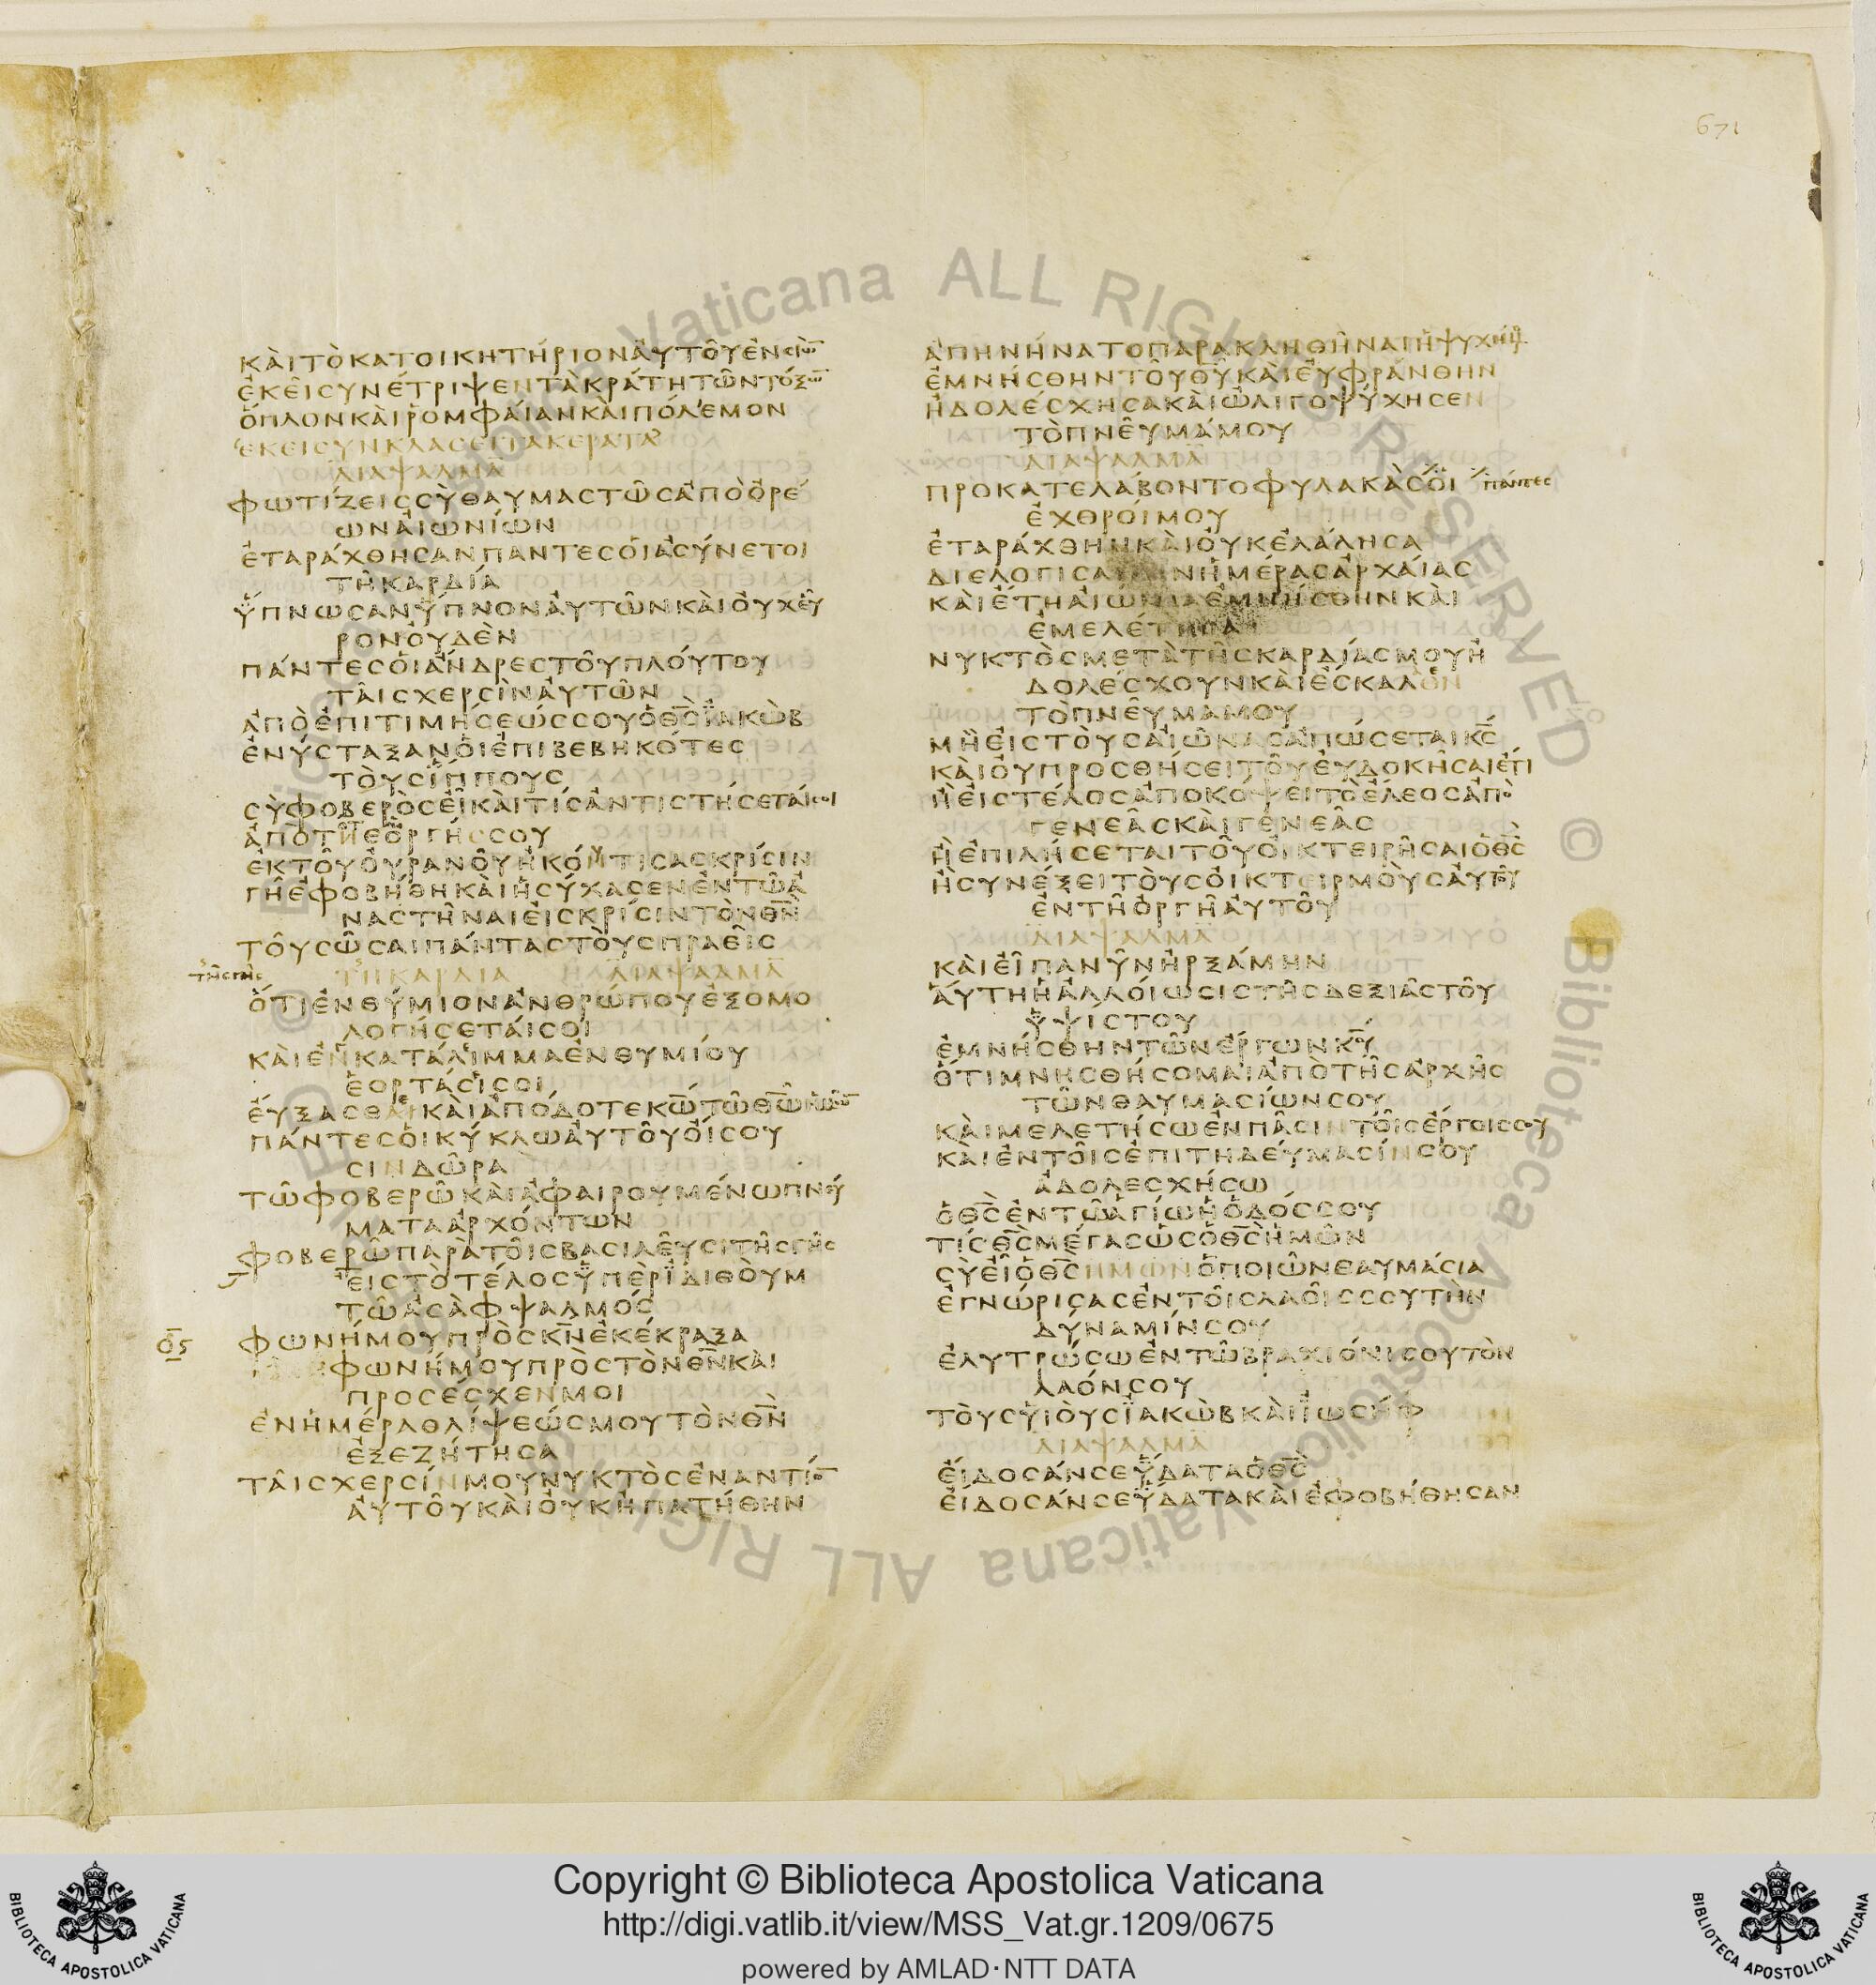 671
ΚΑΙΤΟΚΑΤΟΙΚΗΤΗΡΙΟΝΑΥΤΟΥΕΝϹΙΩ̅
ΕΚΕΙϹΥΝΕΤΡΙΨΕΝΤΑΚΡΑΤΗΤΩΝΤΟΞΩ̅
ΟΠΛΟΝΚΑΙΡΟΜΦΑΙΑΝΚΑΙΠΟΛΕΜΟΝ
ΕΚΕΙϹΥΝΚΛΑϹΕΙΤΑΚΕΡΑΤΑ
ΔΙΑΨΑΛΜΑ
ΦΩΤΙΖΕΙϹϹΥΘΑΥΜΑϹΤΩϹΑΠΟΟΡΕ
ΩΝΑΙΩΝΙΩΝ
ΕΤΑΡΑΧΘΗϹΑΝΠΑΝΤΕϹΟΙΑϹΥΝΕΤΟΙ
ΤΗΚΑΡΔΙΑ
ΥΠΝΩϹΑΝΥΠΝΟΝΑΥΤΩΝΚΑΙΟΥΧΕΥ
ΡΟΝΟΥΔΕΝ
ΠΑΝΤΕϹΟΙΑΝΔΡΕϹΤΟΥΠΛΟΥΤΟΥ
ΤΑΙϹΧΕΡϹΙΝΑΥΤΩΝ
ΑΠΟΕΠΙΤΙΜΗϹΕΩϹϹΟΥΟΘ̅Ϲ̅ΙΑΚΩΒ
ΕΝΥϹΤΑΞΑΝΟΙΕΠΙΒΕΒΗΚΟΤΕϹ
ΤΟΥϹΙΠΠΟΥϹ
ϹΥΦΟΒΕΡΟϹΕΙΚΑΙΤΙϹΑΝΤΙϹΤΗϹΕΤΑΙϹΟΙ
ΑΠΟΤΗϹΟΡΓΗϹϹΟΥ
ΕΚΤΟΥΟΥΡΑΝΟΥΗΚΟΥΤΙϹΑϹΚΡΙϹΙΝ
ΓΗΕΦΟΒΗΘΗΚΑΙΗϹΥΧΑϹΕΝΕΝΤΩΑ
ΝΑϹΤΗΝΑΙΕΙϹΚΡΙϹΙΝΤΟΝΘ̅Ν̅
ΤΟΥϹΩϹΑΙΠΑΝΤΑϹΤΟΥϹΠΡΑΕΙϹ
ΤΗϹΓΗϹ ΤΗΚΑΡΔΙΑ ΔΙΑΨΑΛΜΑ
ΟΤΙΕΝΘΥΜΙΟΝΑΝΘΡΩΠΟΥΕΞΟΜΟ
ΛΟΓΗϹΕΤΑΙϹΟΙ
ΚΑΙΕΝΚΑΤΑΛΙΜΜΑΕΝΘΥΜΙΟΥ
ΕΟΡΤΑϹΙϹΟΙ
ΕΥΞΑϹΘΑΙΚΑΙΑΠΟΔΟΤΕΚ̅Ω̅ΤΩΘ̅Ω̅ΗΜΩ̅
ΠΑΝΤΕϹΟΙΚΥΚΛΩΑΥΤΟΥΟΙϹΟΥ
ϹΙΝΔΩΡΑ
ΤΩΦΟΒΕΡΩΚΑΙΑΦΑΙΡΟΥΜΕΝΩΠΝΕΥ
ΜΑΤΑΑΡΧΟΝΤΩΝ
ΦΟΒΕΡΩΠΑΡΑΤΟΙϹΒΑϹΙΛΕΥϹΙΤΗϹΓΗϹ
ΕΙϹΤΟΤΕΛΟϹΥΠΕΡΙΔΙΘΟΥΜ
ΤΩΑϹΑΦΨΑΛΜΟϹ
Ο̅ϛ̅ ΦΩΝΗΜΟΥΠΡΟϹΚ̅Ν̅ΕΚΕΚΡΑΞΑ
ΦΩΝΗΜΟΥΠΡΟϹΤΟΝΘ̅Ν̅ΚΑΙ
ΠΡΟϹΕϹΧΕΝΜΟΙ
ΕΝΗΜΕΡΑΘΛΙΨΕΩϹΜΟΥΤΟΝΘ̅Ν̅
ΕΞΕΖΗΤΗϹΑ
ΤΑΙϹΧΕΡϹΙΝΜΟΥΝΥΚΤΟϹΕΝΑΝΤΙΟ̅
ΑΥΤΟΥΚΑΙΟΥΚΗΠΑΤΗΘΗΝ
ΑΠΗΝΗΝΑΤΟΠΑΡΑΚΛΗΘΗΝΑΙΗΨΥΧΗΜΟΥ
ΕΜΝΗϹΘΗΝΤΟΥΘ̅Υ̅ΚΑΙΕΥΦΡΑΝΘΗΝ
ΗΔΟΛΕϹΧΗϹΑΚΑΙΩΛΙΓΟΨΥΧΗϹΕΝ
ΤΟΠΝΕΥΜΑΜΟΥ
ΔΙΑΨΑΛΜΑ
ΠΡΟΚΑΤΕΛΑΒΟΝΤΟΦΥΛΑΚΑϹΟΙ ΠΑΝΤΕϹ
ΕΧΘΡΟΙΜΟΥ
ΕΤΑΡΑΧΘΗΝΚΑΙΟΥΚΕΛΑΛΗϹΑ
ΔΙΕΛΟΓΙϹΑΜΗΝΗΜΕΡΑϹΑΡΧΑΙΑϹ
ΚΑΙΕΤΗΑΙΩΝΙΑΕΜΝΗϹΘΗΝΚΑΙ
ΕΜΕΛΕΤΗϹΑ
ΝΥΚΤΟϹΜΕΤΑΤΗϹΚΑΡΔΙΑϹΜΟΥΗ
ΔΟΛΕϹΧΟΥΝΚΑΙΕϹΚΑΛΛΟΝ
ΤΟΠΝΕΥΜΑΜΟΥ
ΜΗΕΙϹΤΟΥϹΑΙΩΝΑϹΑΠΩϹΕΤΑΙΚ̅Ϲ̅
ΚΑΙΟΥΠΡΟϹΘΗϹΕΙΤΟΥΕΥΔΟΚΗϹΑΙΕΤΙ
ΗΕΙϹΤΕΛΟϹΑΠΟΚΟΨΕΙΤΟΕΛΕΟϹΑΠΟ
ΓΕΝΕΑϹΚΑΙΓΕΝΕΑϹ
ΗΕΠΙΛΗϹΕΤΑΙΤΟΥΟΙΚΤΕΙΡΗϹΑΙΟΘ̅Ϲ̅
ΗϹΥΝΕΞΕΙΤΟΥϹΟΙΚΤΕΙΡΜΟΥϹΑΥΤΟΥ
ΕΝΤΗΟΡΓΗΑΥΤΟΥ
ΔΙΑΨΑΛΜΑ
ΚΑΙΕΙΠΑΝΥΝΗΡΞΑΜΗΝ
ΑΥΤΗΗΑΛΛΟΙΩϹΙϹΤΗϹΔΕΞΙΑϹΤΟΥ
ΥΨΙϹΤΟΥ
ΕΜΝΗϹΘΗΝΤΩΝΕΡΓΩΝΚ̅Υ̅
ΟΤΙΜΝΗϹΘΗϹΟΜΑΙΑΠΟΤΗϹΑΡΧΗϹ
ΤΩΝΘΑΥΜΑϹΙΩΝϹΟΥ
ΚΑΙΜΕΛΕΤΗϹΩΕΝΠΑϹΙΝΤΟΙϹΕΡΓΟΙϹϹΟΥ
ΚΑΙΕΝΤΟΙϹΕΠΙΤΗΔΕΥΜΑϹΙΝϹΟΥ
ΑΔΟΛΕϹΧΗϹΩ
ΟΘ̅Ϲ̅ΕΝΤΩΑΓΙΩΗΟΔΟϹϹΟΥ
ΤΙϹΘ̅Ϲ̅ΜΕΓΑϹΩϹΟΘ̅Ϲ̅ΗΜΩΝ
ϹΥΕΙΟΘ̅Ϲ̅ΗΜΩΝΟΠΟΙΩΝΘΑΥΜΑϹΙΑ
ΕΓΝΩΡΙϹΑϹΕΝΤΟΙϹΛΑΟΙϹϹΟΥΤΗΝ
ΔΥΝΑΜΙΝϹΟΥ
ΕΛΥΤΡΩϹΩΕΝΤΩΒΡΑΧΙΟΝΙϹΟΥΤΟΝ
ΛΑΟΝϹΟΥ
ΤΟΥϹΥΙΟΥϹΙΑΚΩΒΚΑΙΙΩϹΗΦ
ΔΙΑΨΑΛΜΑ
ΕΙΔΟϹΑΝϹΕΥΔΑΤΑΟΘ̅Ϲ̅
ΕΙΔΟϹΑΝϹΕΥΔΑΤΑΚΑΙΕΦΟΒΗΘΗϹΑΝ
Vaticana ALL RIGHTS RESERVED © Biblioteca Apostolica Vaticana ALL RIGHTS RESERVED © Biblioteca
Copyright © Biblioteca Apostolica Vaticana
http://digi.vatlib.it/view/MSS_Vat.gr.1209/0675
powered by AMLAD·NTT DATA
BIBLIOTECA APOSTOLICA VATICANA
BIBLIOTECA APOSTOLICA VATICANA